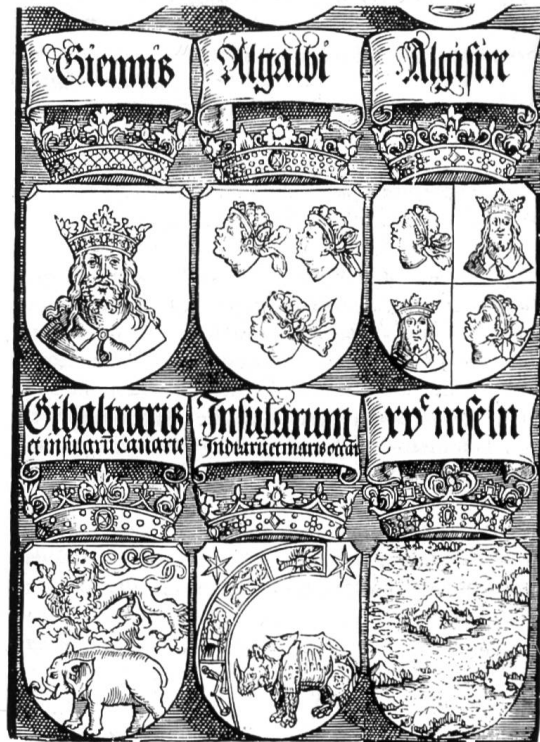 Giennis
Algalbi
Algisire
Gibaltraris
et insularũ canarie
Insularum
Indiarũ et maris occãn
xvᶜ inseln